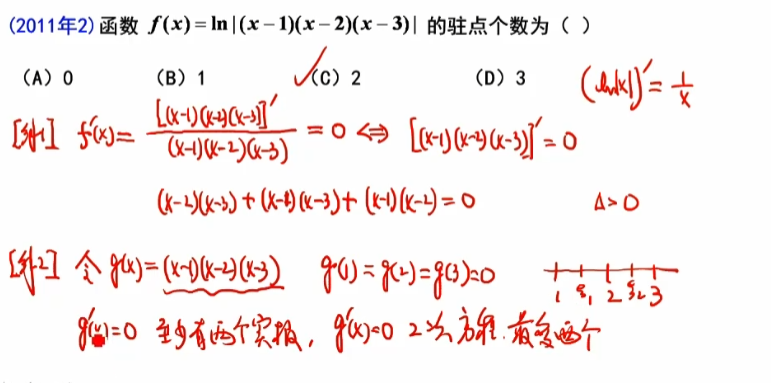 (2011年2) 函数 f(x) = ln|(x-1)(x-2)(x-3)| 的驻点个数为（ ）
（A）0 （B）1 （C）2 （D）3 (ln|x|)' = 1/x
[解1] f'(x) = [(x-1)(x-2)(x-3)]' / (x-1)(x-2)(x-3) = 0 ⇔ [(x-1)(x-2)(x-3)]' = 0
(x-2)(x-3) + (x-1)(x-3) + (x-1)(x-2) = 0 Δ > 0
[解2] 令 g(x) = (x-1)(x-2)(x-3) g(1) = g(2) = g(3) = 0
1 ξ₁ 2 ξ₂ 3
g'(x) = 0 至少有两个实根, g'(x) = 0 2次方程. 最多两个